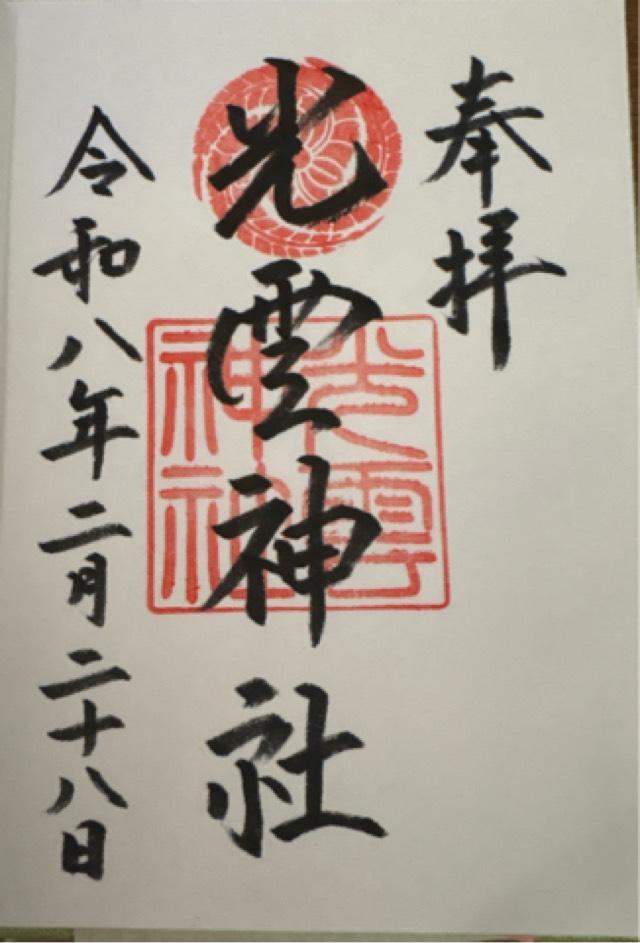 奉拝
光雲神社
光雲
神社
令和八年二月二十八日